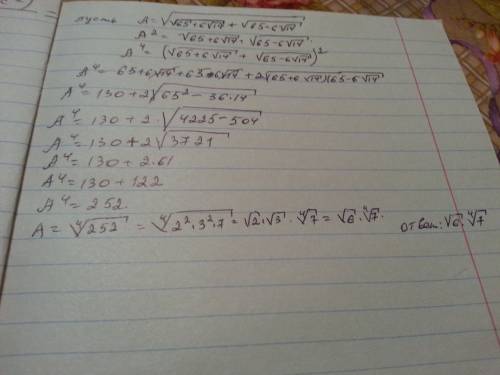 пусть A = √(√(65+6√14) + √(65-6√14))
A² = √(65+6√14) + √(65-6√14)
A⁴ = (√(65+6√14) + √(65-6√14))²
A⁴ = 65+6√14 + 65-6√14 + 2√((65+6√14)(65-6√14))
A⁴ = 130+2√(65²-36·14)
A⁴ = 130+2·√(4225-504)
A⁴ = 130+2√3721
A⁴ = 130+2·61
A⁴ = 130+122
A⁴ = 252.
A = ⁴√252 = ⁴√(2²·3²·7) = √2·√3·⁴√7 = √6·⁴√7. ответ: √6·⁴√7